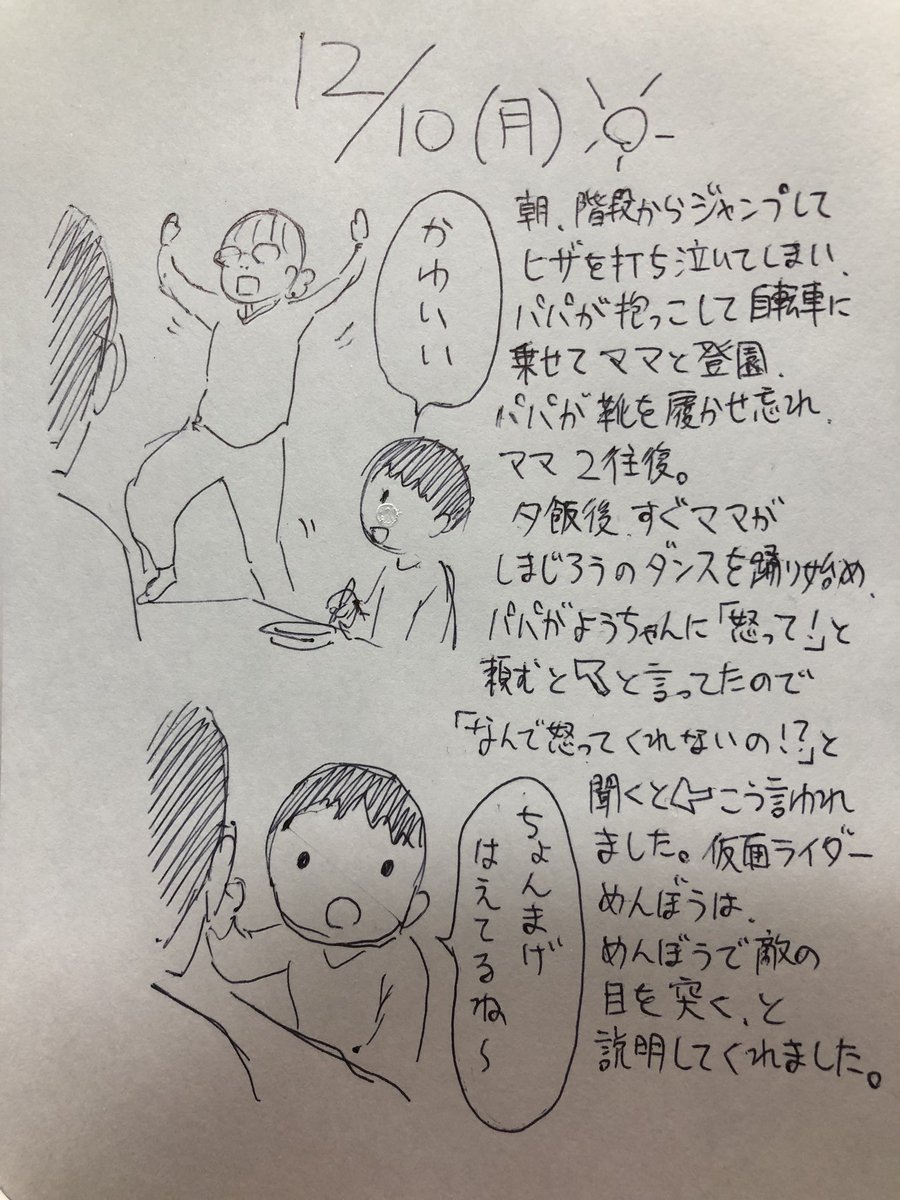 12/10(月)
朝、階段からジャンプして
ヒザを打ち泣いてしまい、
パパが抱っこして自転車に
乗せてママと登園、
パパが靴を履かせ忘れ、
ママ2往復。
夕飯後、すぐママが
しまじろうのダンスを踊り始め、
パパがようちゃんに「怒って!」と
頼むと⇖と言ってたので
「なんで怒ってくれないの!?」と
聞くと⇦こう言われ
ました。仮面ライダー
めんぼうは、
めんぼうで敵の
目を突く、と
説明してくれました。
かわいい
ちょんまげ
はえてるね〜